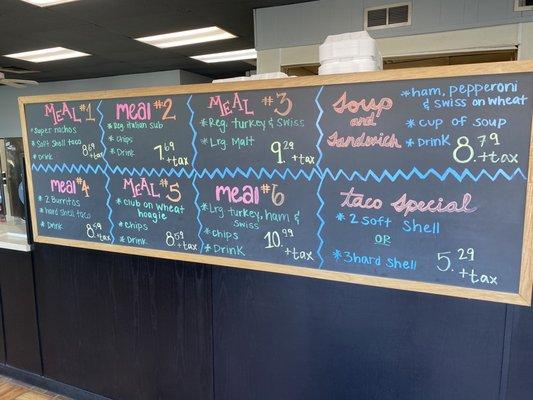 MEAL #1
* Super nachos
* Soft Shell taco
* Drink
8.69 +tax
meal #2
* Reg. Italian sub
* Chips
* Drink
7.69 +tax
MEAL #3
* Reg. Turkey & Swiss
* Lrg. Malt
9.29 +tax
Soup and Sandwich
* ham, Pepperoni
& swiss on wheat
* cup of soup
* Drink
8.79 +tax
meal #4
* 2 Burritos
* hard Shell taco
* Drink
8.59 +tax
MEAL #5
* club on Wheat
hoagie
* chips
* Drink
8.59 +tax
meal #6
* Lrg. turkey, ham &
swiss
* chips
* Drink
10.29 +tax
taco Special
* 2 soft Shell
OR
* 3 hard Shell
5.29 +tax